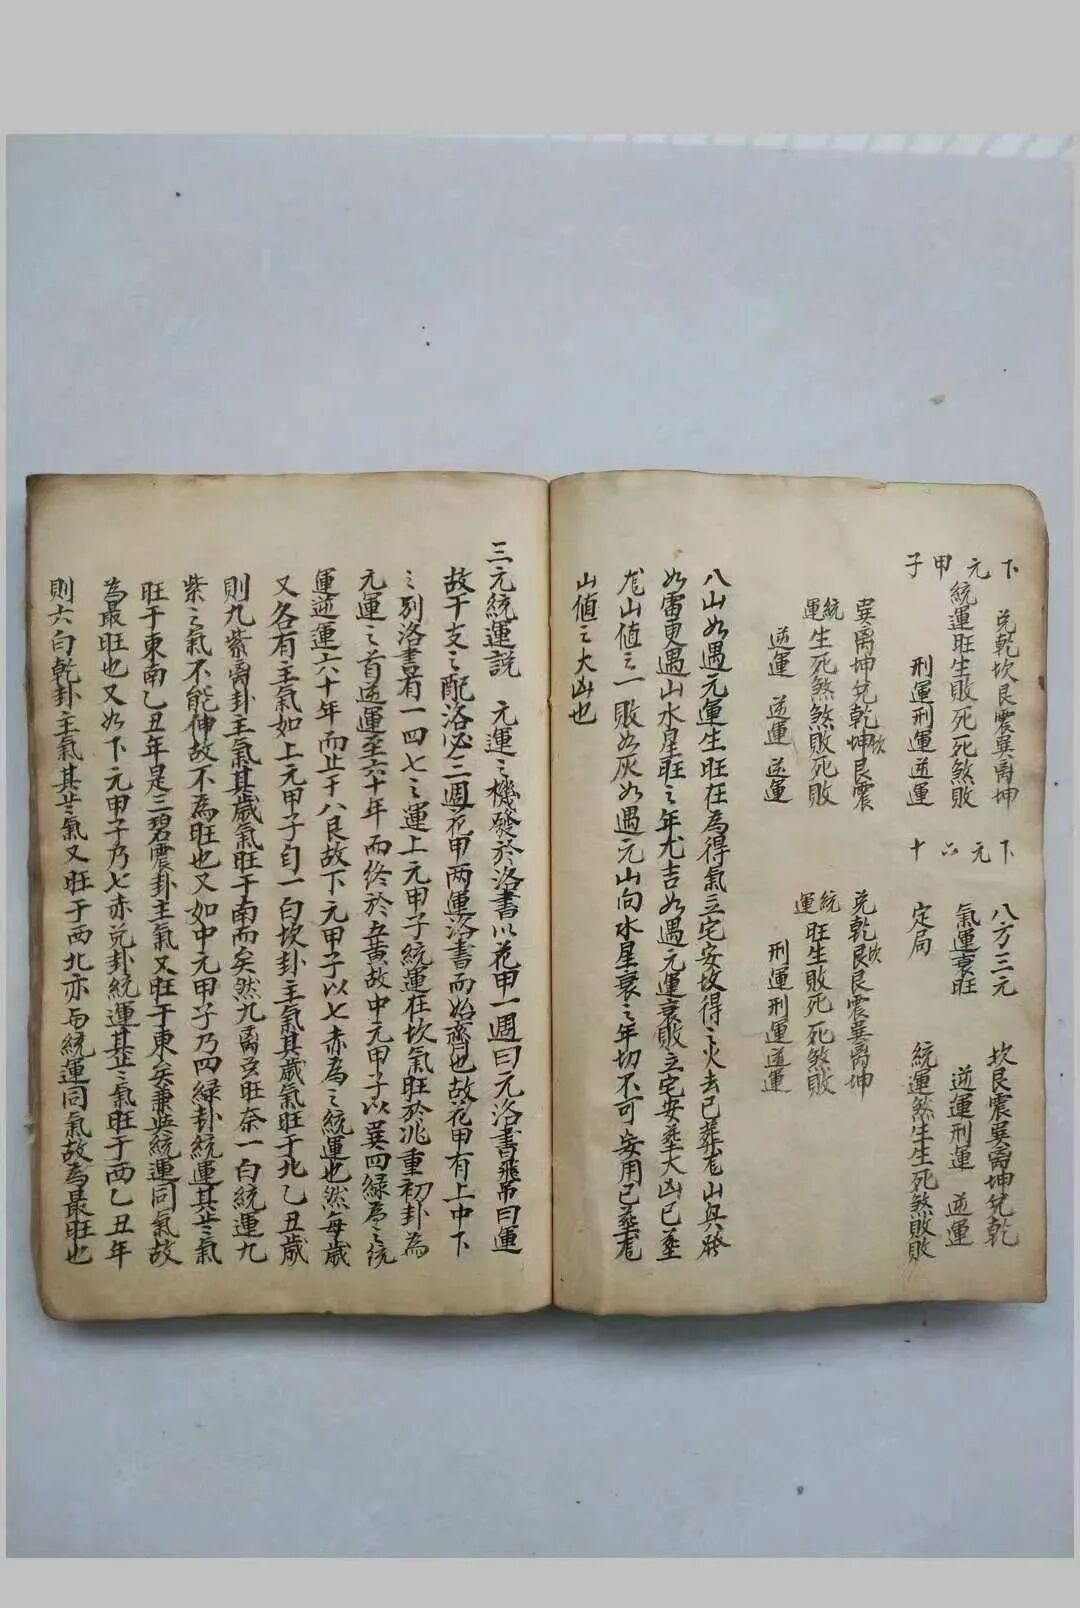 下元甲子
兌乾坎艮震巽离坤
統運旺生敗死死煞敗
刑運刑運逆運
巽离坤兌乾坤坎艮震
統運生死煞煞敗死敗
逆運 逆運 逆運
下元六十
八方三元
氣運衰旺
定局
坎艮震巽离坤兌乾
逆運刑運 逆運
統運煞生生死煞敗敗
兌乾坎艮艮震巽离坤
統運旺生敗死死煞敗
刑運刑運逆運
八山如遇元運生旺在為得氣立宅安坟得之火去已葬山與
如雷更遇山水星旺之年尤吉如遇元運衰敗立宅安葬大凶已葬
山值之一敗如灰如遇元山向水星衰之年切不可安用已葬
山值之大凶也
三元統運説 元運之機發於洛書以花甲一週曰元洛書飛吊曰運
故干支之配洛必三週花甲两運洛書而始齊也故花甲有上中下
之别洛書有一四七之運上元甲子統運在坎氣旺於兆重初卦為
元運之首逆運至六十年而終於五黄故中元甲子以巽四緑為之統
運逆運六十年而止于八艮故下元甲子以七赤為之統運也然每歲
又各有主氣如上元甲子自一白坎卦主氣其歲氣旺于北乙丑歲
則九紫离卦主氣其歲氣旺于南而矣然九离京旺奈一白統運九
紫之氣不能伸故不為旺也又如中元甲子乃四緑卦統運其芒氣
旺于東南乙丑年是三碧震卦主氣又旺于東矣兼與統運同氣故
為最旺也又如下元甲子乃七赤兑卦統運其芒氣旺于西乙丑年
則六白乾卦主氣其芒氣又旺于西北亦与統運同氣故為最旺也